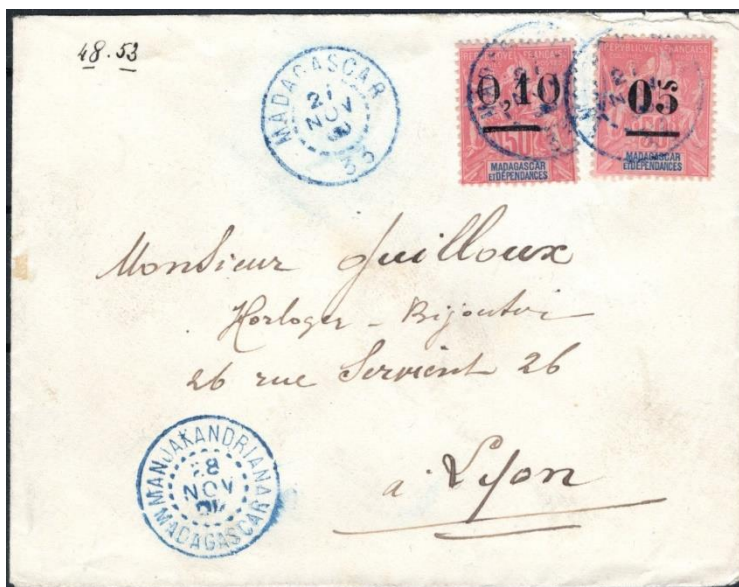 48.53
MADAGASCAR
21
NOV
33
RÉPUBLIQUE FRANÇAISE
0,10
50
MADAGASCAR
ET DÉPENDANCES
RÉPUBLIQUE FRANÇAISE
05
50
MADAGASCAR
ET DÉPENDANCES
Monsieur Guilloux
Horloger - Bijoutier
26 rue Servient 26
a Lyon
MANJAKANDRIANA
28
NOV
MADAGASCAR